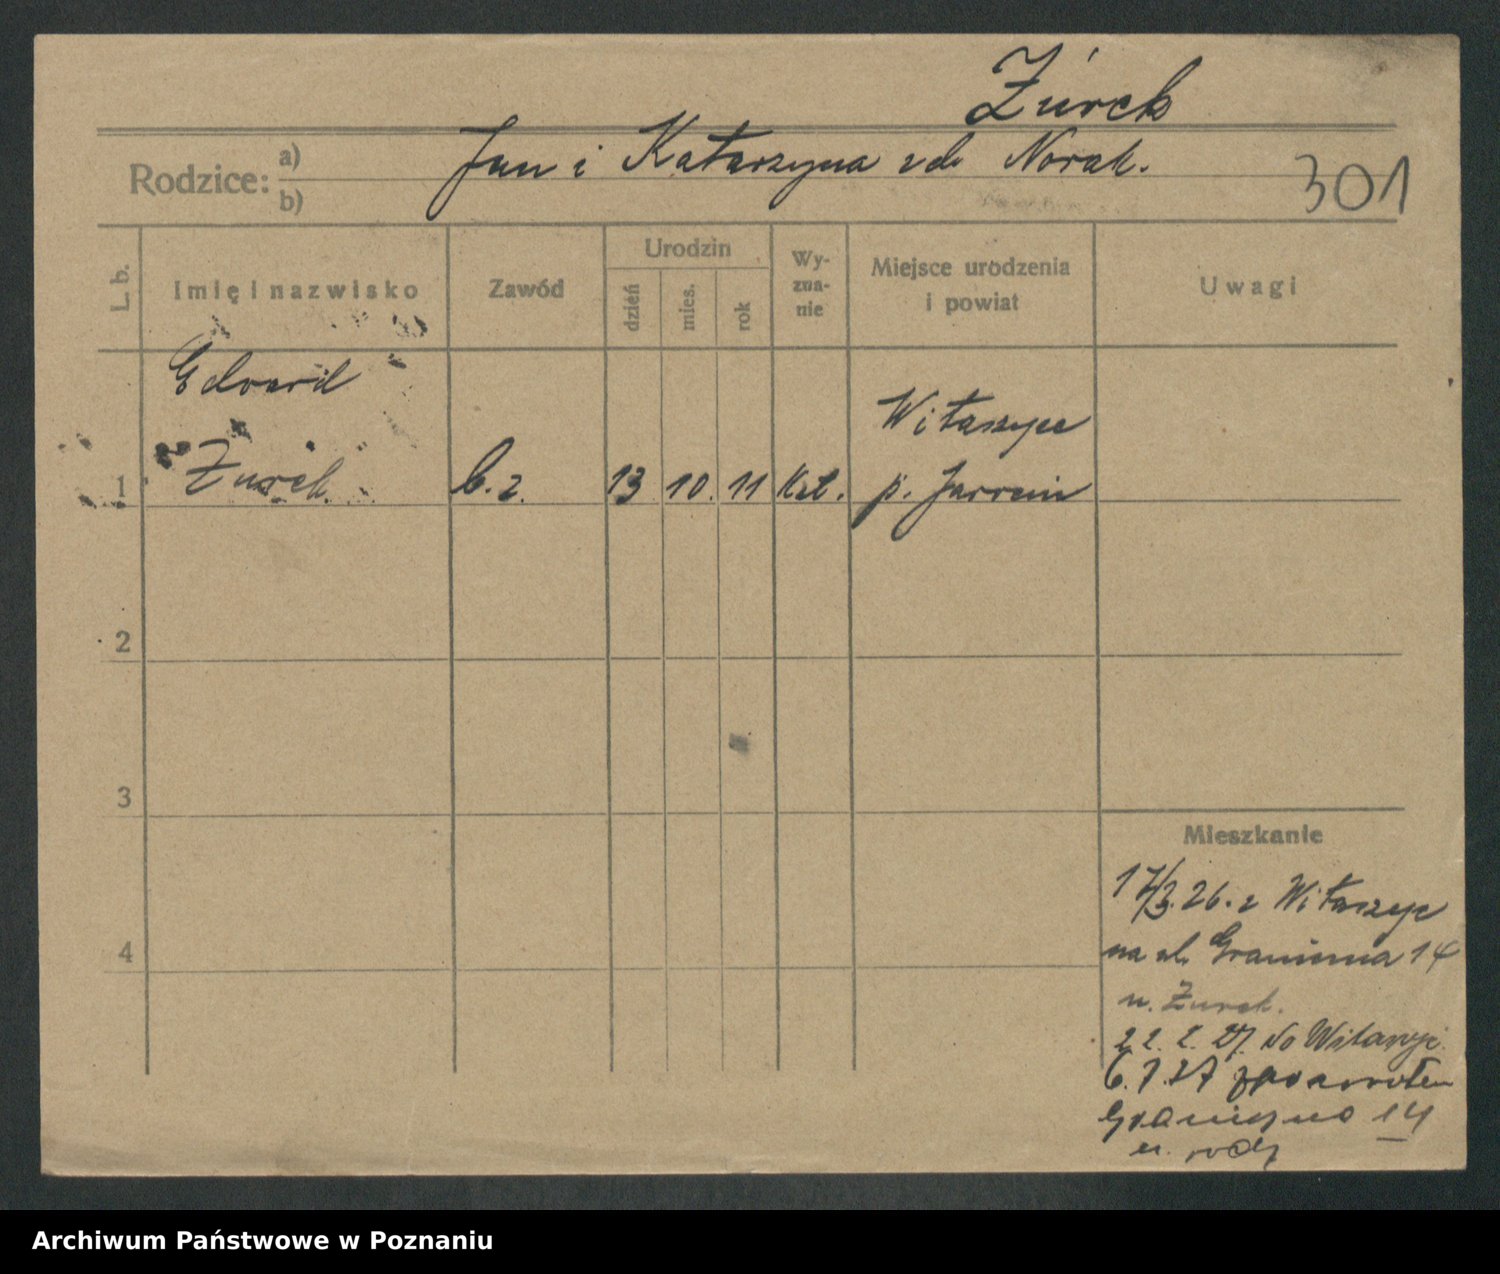 Żurek
Rodzice: a) b)
Jan i Katarzyna zd. Nowak.
301
L. b.
Imię i nazwisko
Zawód
Urodzin
dzień
mies.
rok
Wy-
zna-
nie
Miejsce urodzenia
i powiat
Uwagi
Edward
Witaszyce
1 Żurek b. z. 13 10. 11 Kat. p. Jarocin
2
3
Mieszkanie
17/3. 26. z Witaszyc
4
na ul. Graniczna 14
u. Żurek.
22. 2. 27. do Witaszyc
6. 7. 27 z powrotem
Graniczna 14
u. rodz
Archiwum Państwowe w Poznaniu